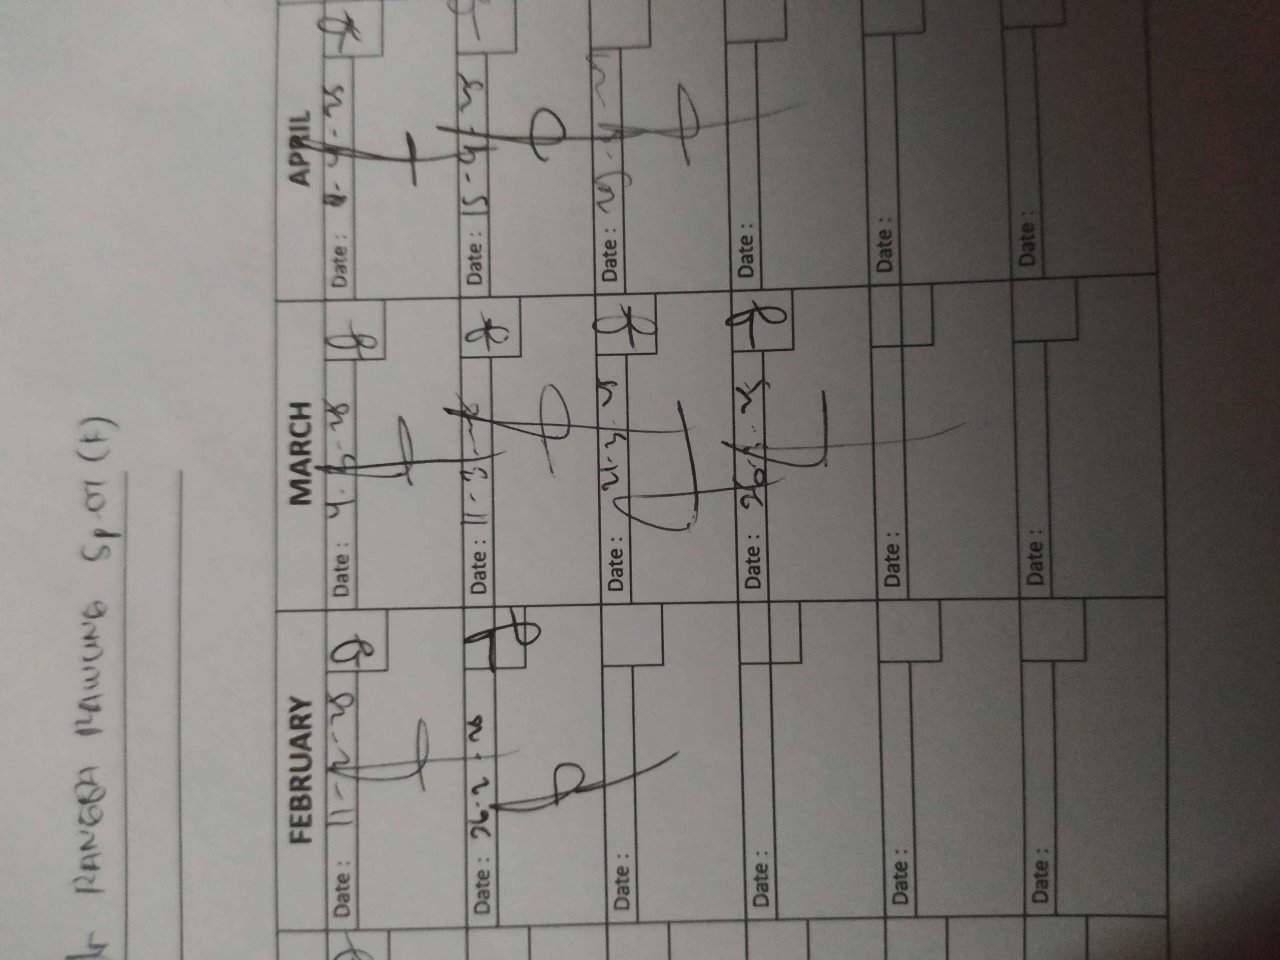 RANGGA MAWUNG Sp.OT (K)
FEBRUARY MARCH APRIL
Date : 11-2-25 Date : 4.3-25 Date : 4-4-25
Date : 26.2.25 Date : 11-3-25 Date : 15-4-25
Date : Date : 21.3.25 Date : 29.4-25
Date : Date : 26.3.25 Date :
Date : Date : Date :
Date : Date : Date :